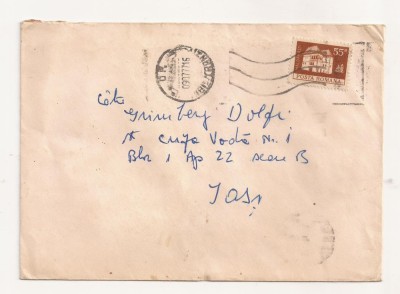 55 B
POSTA ROMANA
Către
Grimberg Dolfi
Str Cuza Vodă N. 1
Bloc 1 Ap 22 scara B
Iași